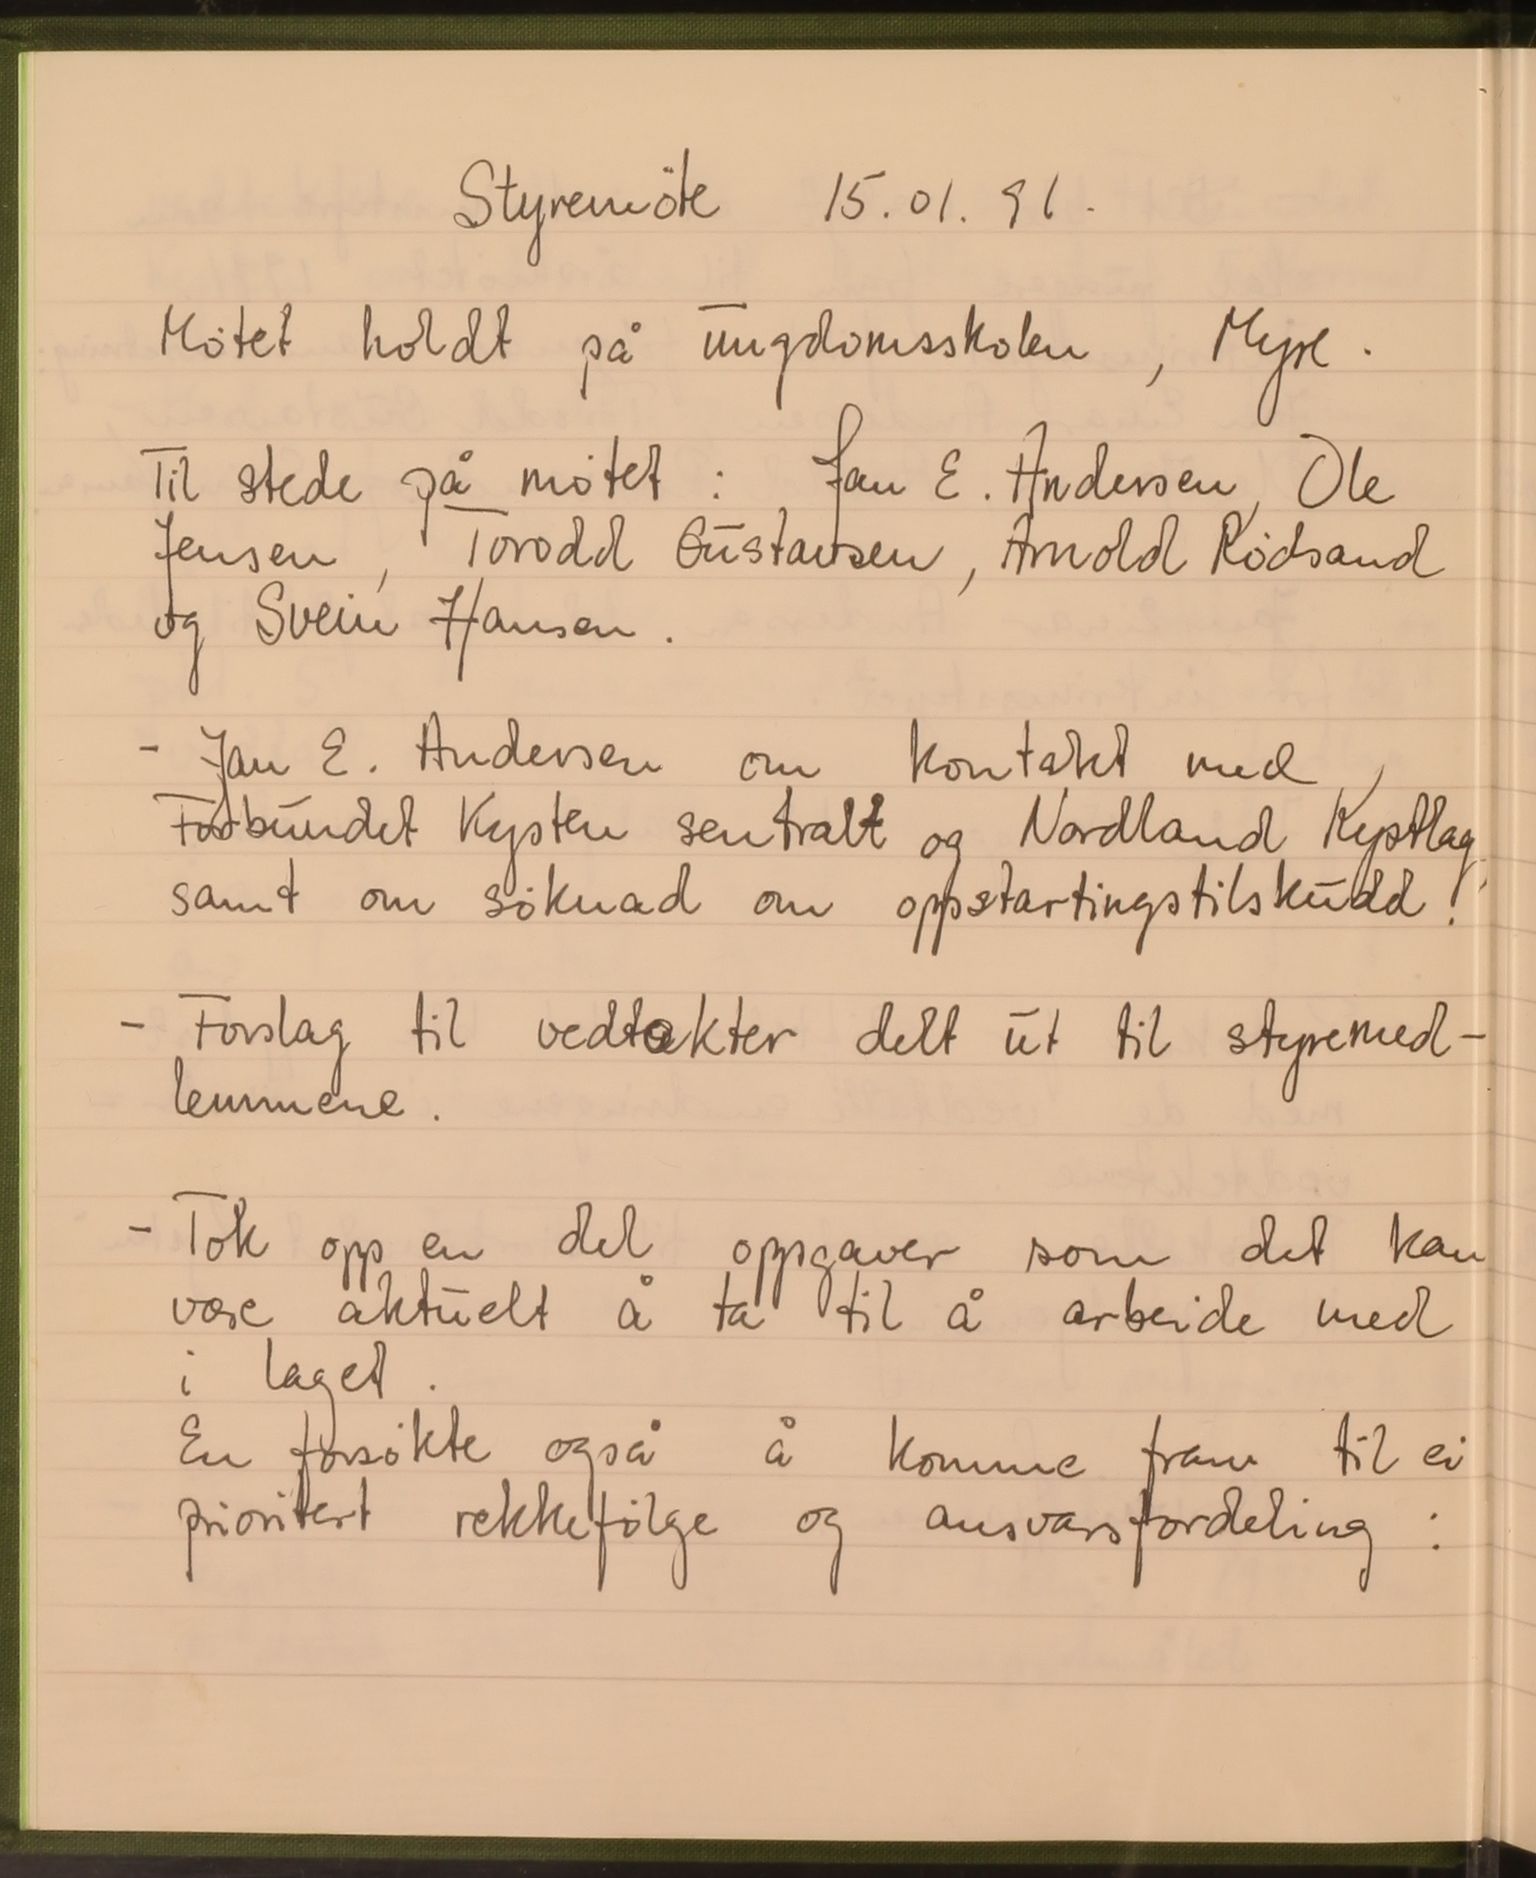 Styremöte 15.01.91.
Møtet holdt på ungdomsskolen, Myre.
Til stede på møtet: Jan E. Andersen, Ole
Jensen, Torodd Gustavsen, Arnold Rødsand
og Svein Hansen.
- Jan E. Andersen om kontakt med
Forbundet Kysten sentralt og Nordland Kystlag,
samt om søknad om oppstartingstilskudd!
- Forslag til vedtekter delt ut til styremed-
lemmene.
- Tok opp en del oppgaver som det kan
være aktuelt å ta til å arbeide med
i laget.
En forsøkte også å komme fram til ei
prioritert rekkefølge og ansvarsfordeling: